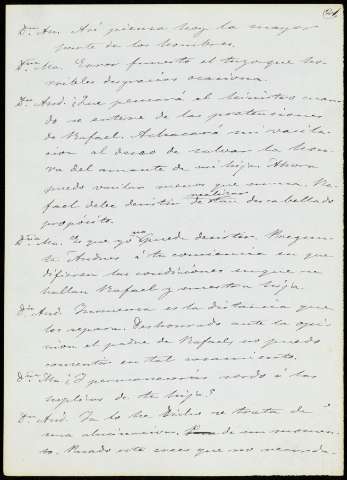 24
Dn. An. Así piensa hoy la mayor
parte de los hombres.
Dña. Ma. Error funesto el tuyo que ho-
rribles desgracias ocasiona.
Dn. And. ¿Qué pensará el ministro cuan-
do se entere de las pretenciones
de Rafael. Achacará mi vacila-
cion al deseo de salvar la hon-
ra del amante de mi hija. Ahora
puedo vacilar menos que nunca. Ra-
fael debe desistir de realizar tan descabellado
propósito.
Dña. Ma. Es que yo no puede desistir. Pregun-
ta Andres á tu conciencia en que
difieren las condiciones en que se
hallan Rafael y nuestra hija.
Dn. And. Inmensa es la distancia que
los separa. Deshonrado ante la opi-
nion el padre de Rafael no puedo
consentir en tal casamiento.
Dña. Ma. ¿Y permanecerás sordo á las
suplicas de tu hija?
Dn. And. Ya lo he dicho se trata de
una alucinacion de un momen-
to. Pasado este creo que no